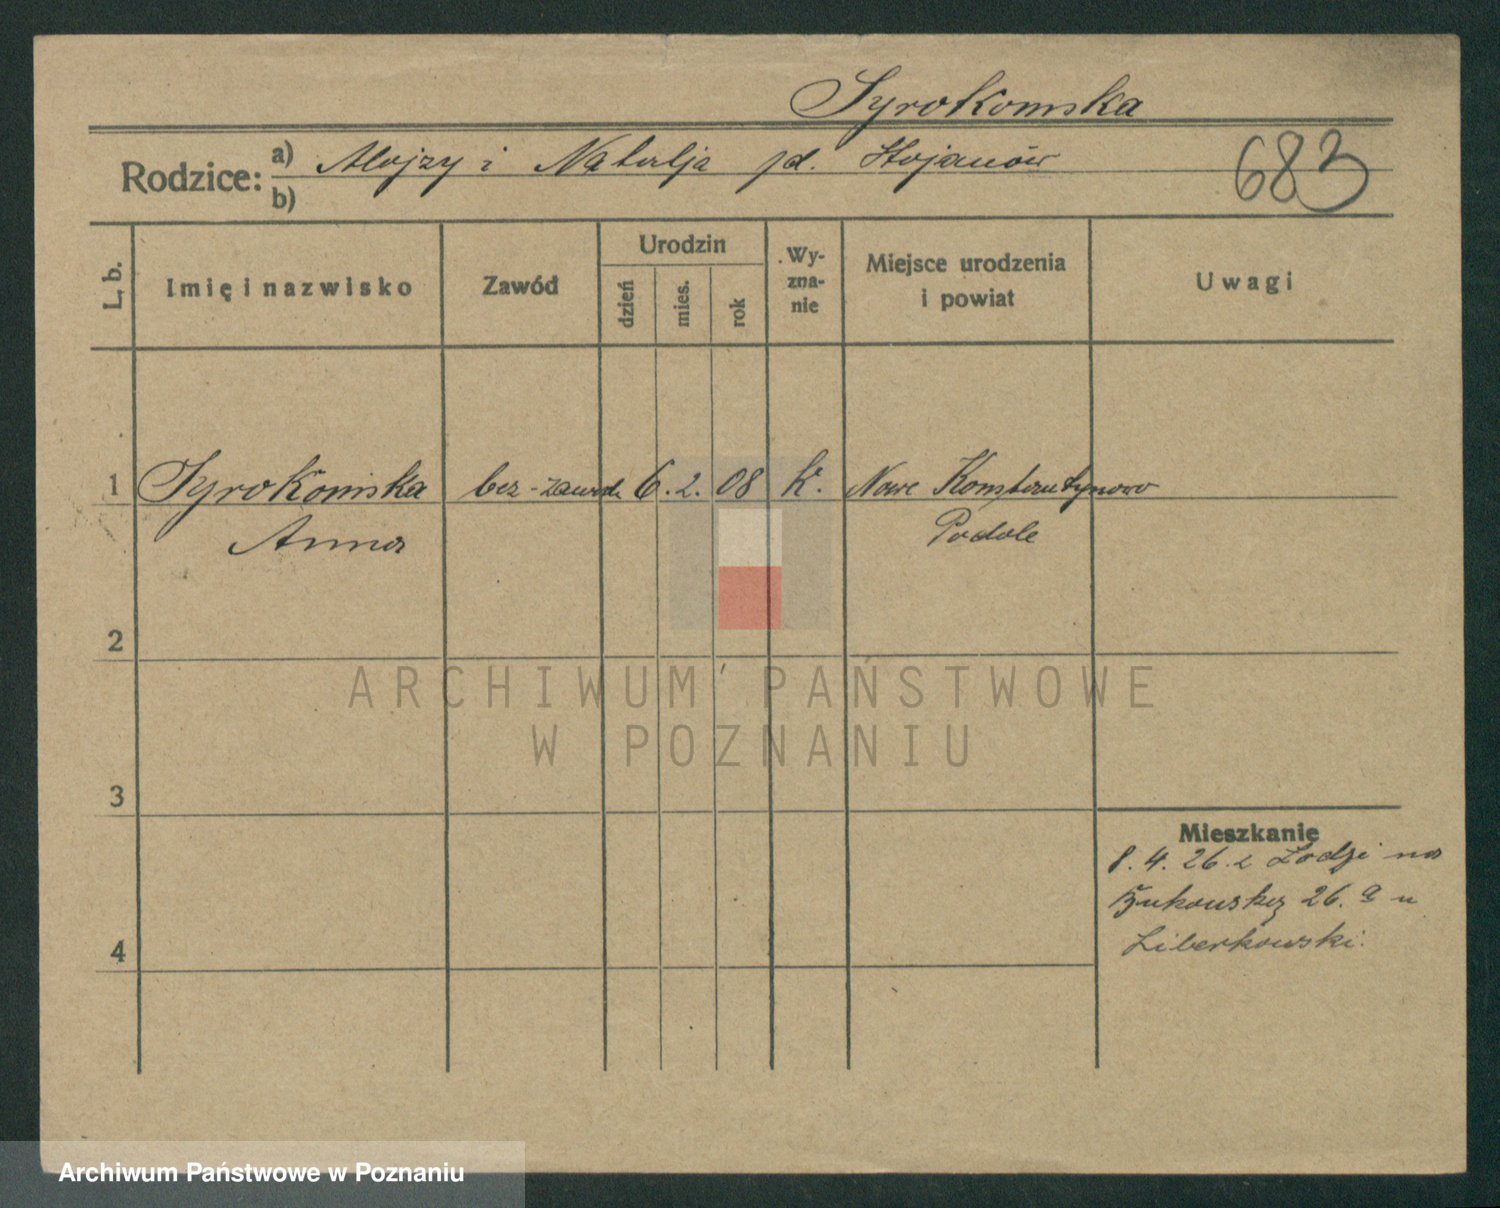 Syrokomska
Rodzice: a) Alojzy i Natalja
b)
683
L. b.
Imię i nazwisko
Zawód
Urodzin
dzień
mies.
rok
Wy-
zna-
nie
Miejsce urodzenia
i powiat
Uwagi
1 Syrokomska bez-zawodu 6. 2. 08 k. Nowe Konstantynowo
Anna Podole
2
3
4
Mieszkanie
8. 4. 26. z Łodzi na
26. a u
Liberkowski.
ARCHIWUM PAŃSTWOWE
W POZNANIU
Archiwum Państwowe w Poznaniu